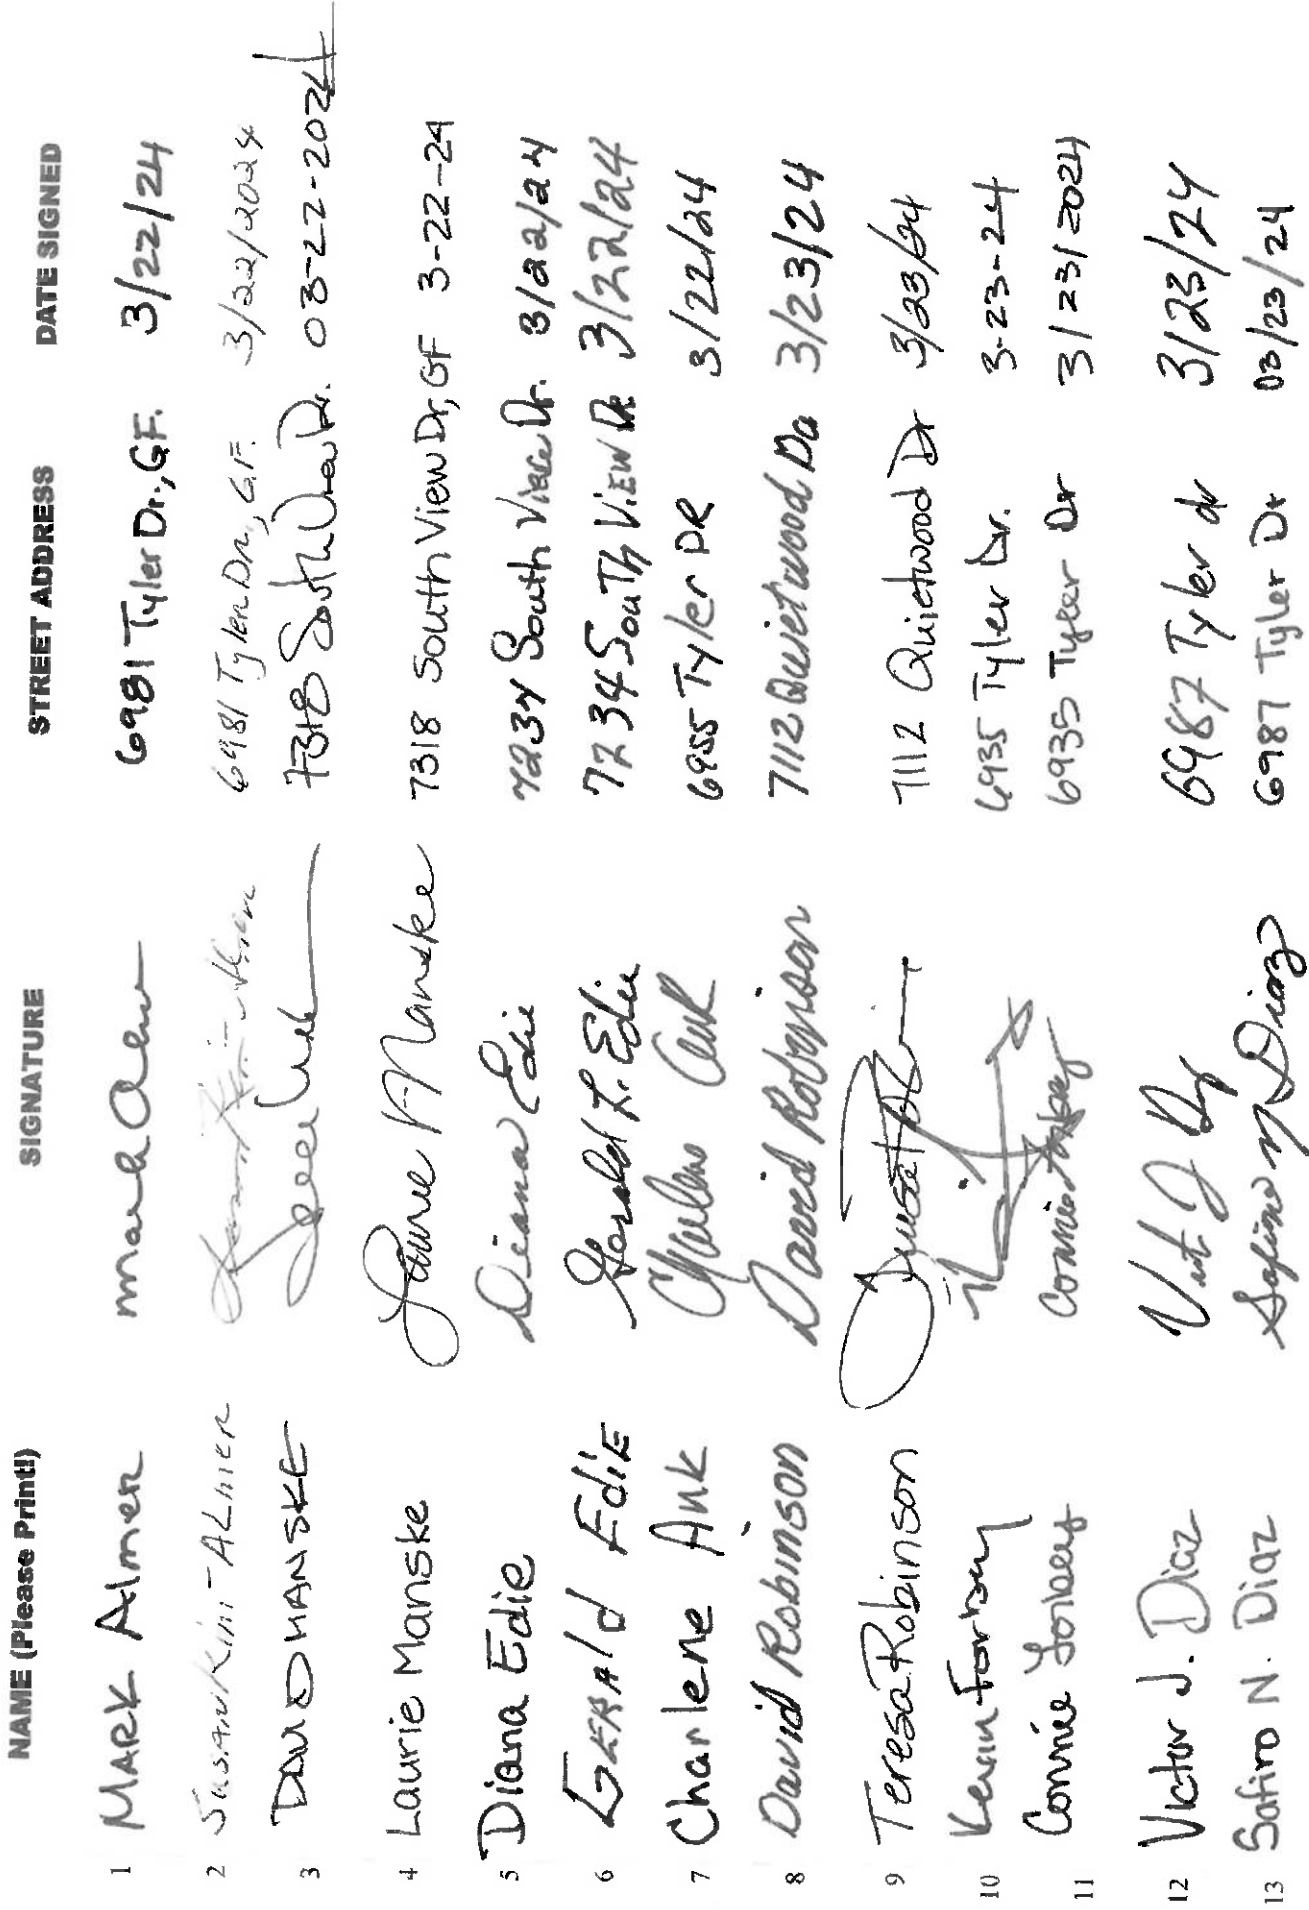 NAME (Please Print!) SIGNATURE STREET ADDRESS DATE SIGNED
1 MARK Almer Mark Almer 6981 Tyler Dr., GF. 3/22/24
2 SUSAN Kim-ALmer 6981 Tyler Dr., G.F. 3/22/2024
3 DAVID MANSKE 7318 South View Dr. 03-22-2024
4 Laurie Manske Laurie Manske 7318 South View Dr, GF 3-22-24
5 Diana Edie Diana Edie 7234 South View Dr. 3/22/24
6 GERAld EdiE Gerald L. Edie 7234 SouTh ViEW DR 3/22/24
7 Charlene Ank Charlene Ank 6955 Tyler DR 3/22/24
8 David Robinson David Robinson 7112 Quietwood Dr 3/23/24
9 Teresa Robinson 7112 Quietwood Dr 3/23/24
10 Kevin Forbey 6935 Tyler Dr. 3-23-24
11 Connie Forbey Connie Forbey 6935 Tyler Dr 3/23/2024
12 Victor J. Diaz 6987 Tyler dr 3/23/24
13 N. Diaz N Diaz 6987 Tyler Dr 03/23/24